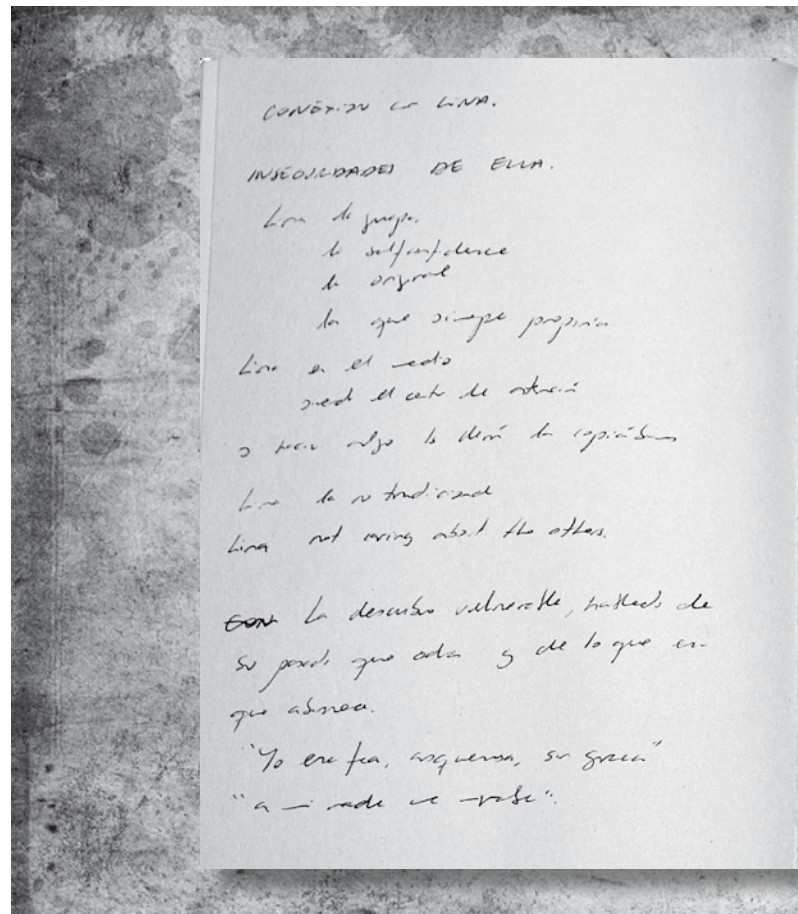 CONEXION con LINA.
INSEGURIDADES DE ELLA.
Lina la guapa,
la selfconfidence
la original
la que siempre propinia
Lina en el medio
siendo el centro de atención
si hacia algo lo demás la copiábamos
Lina la no tradicional
Lina not caring about the others.
La descubro vulnerable, hablando de
su pasado que odia y de lo que
que
"Yo era fea, asquerosa, sin gracia"
"a mi nadie me